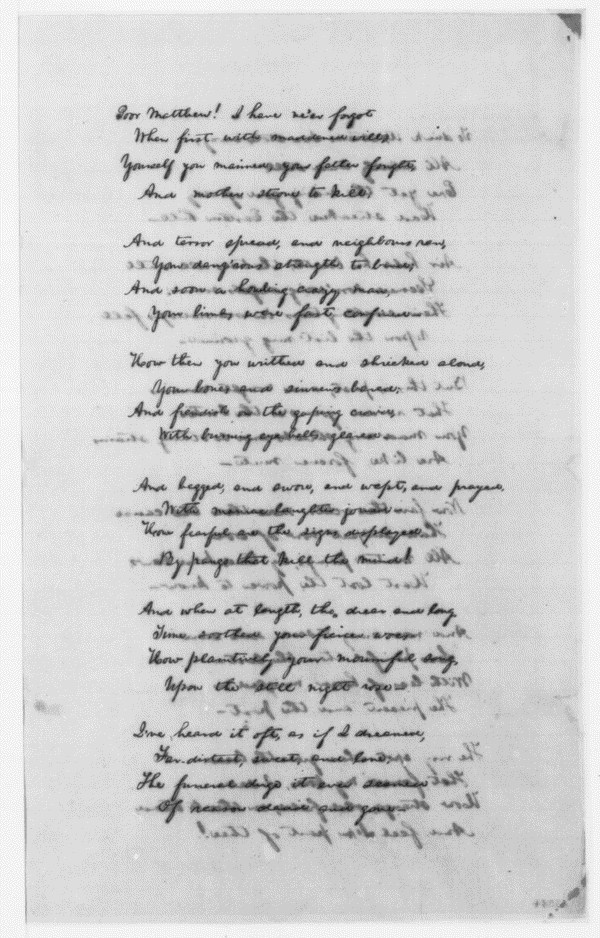 Poor Matthew! I have ne'er forgot
When first with maddened will,
Yourself you maimed, your father fought,
And mother strove to kill;
And terror spread, and neighbours ran,
Your dang'rous strength to bind;
And soon a howling crazy man,
Your limbs were fast confined
How then you writhed and shrieked aloud,
Your bones and sinnews bared;
And fiendish on the gaping crowd,
With burning eye-balls glared
And begged, and swore, and wept, and prayed,
With maniac laughter joined
How fearful are the signs displayed,
By pangs that kill the mind!
And when at length, tho. drear and long,
Time soothed your fiercer woes
How plaintively your mournful song,
Upon the still night rose
I've heard it oft, as if I dreamed,
Far-distant, sweet, and lone;
The funeral dirge it ever seemed
Of reason dead and gone